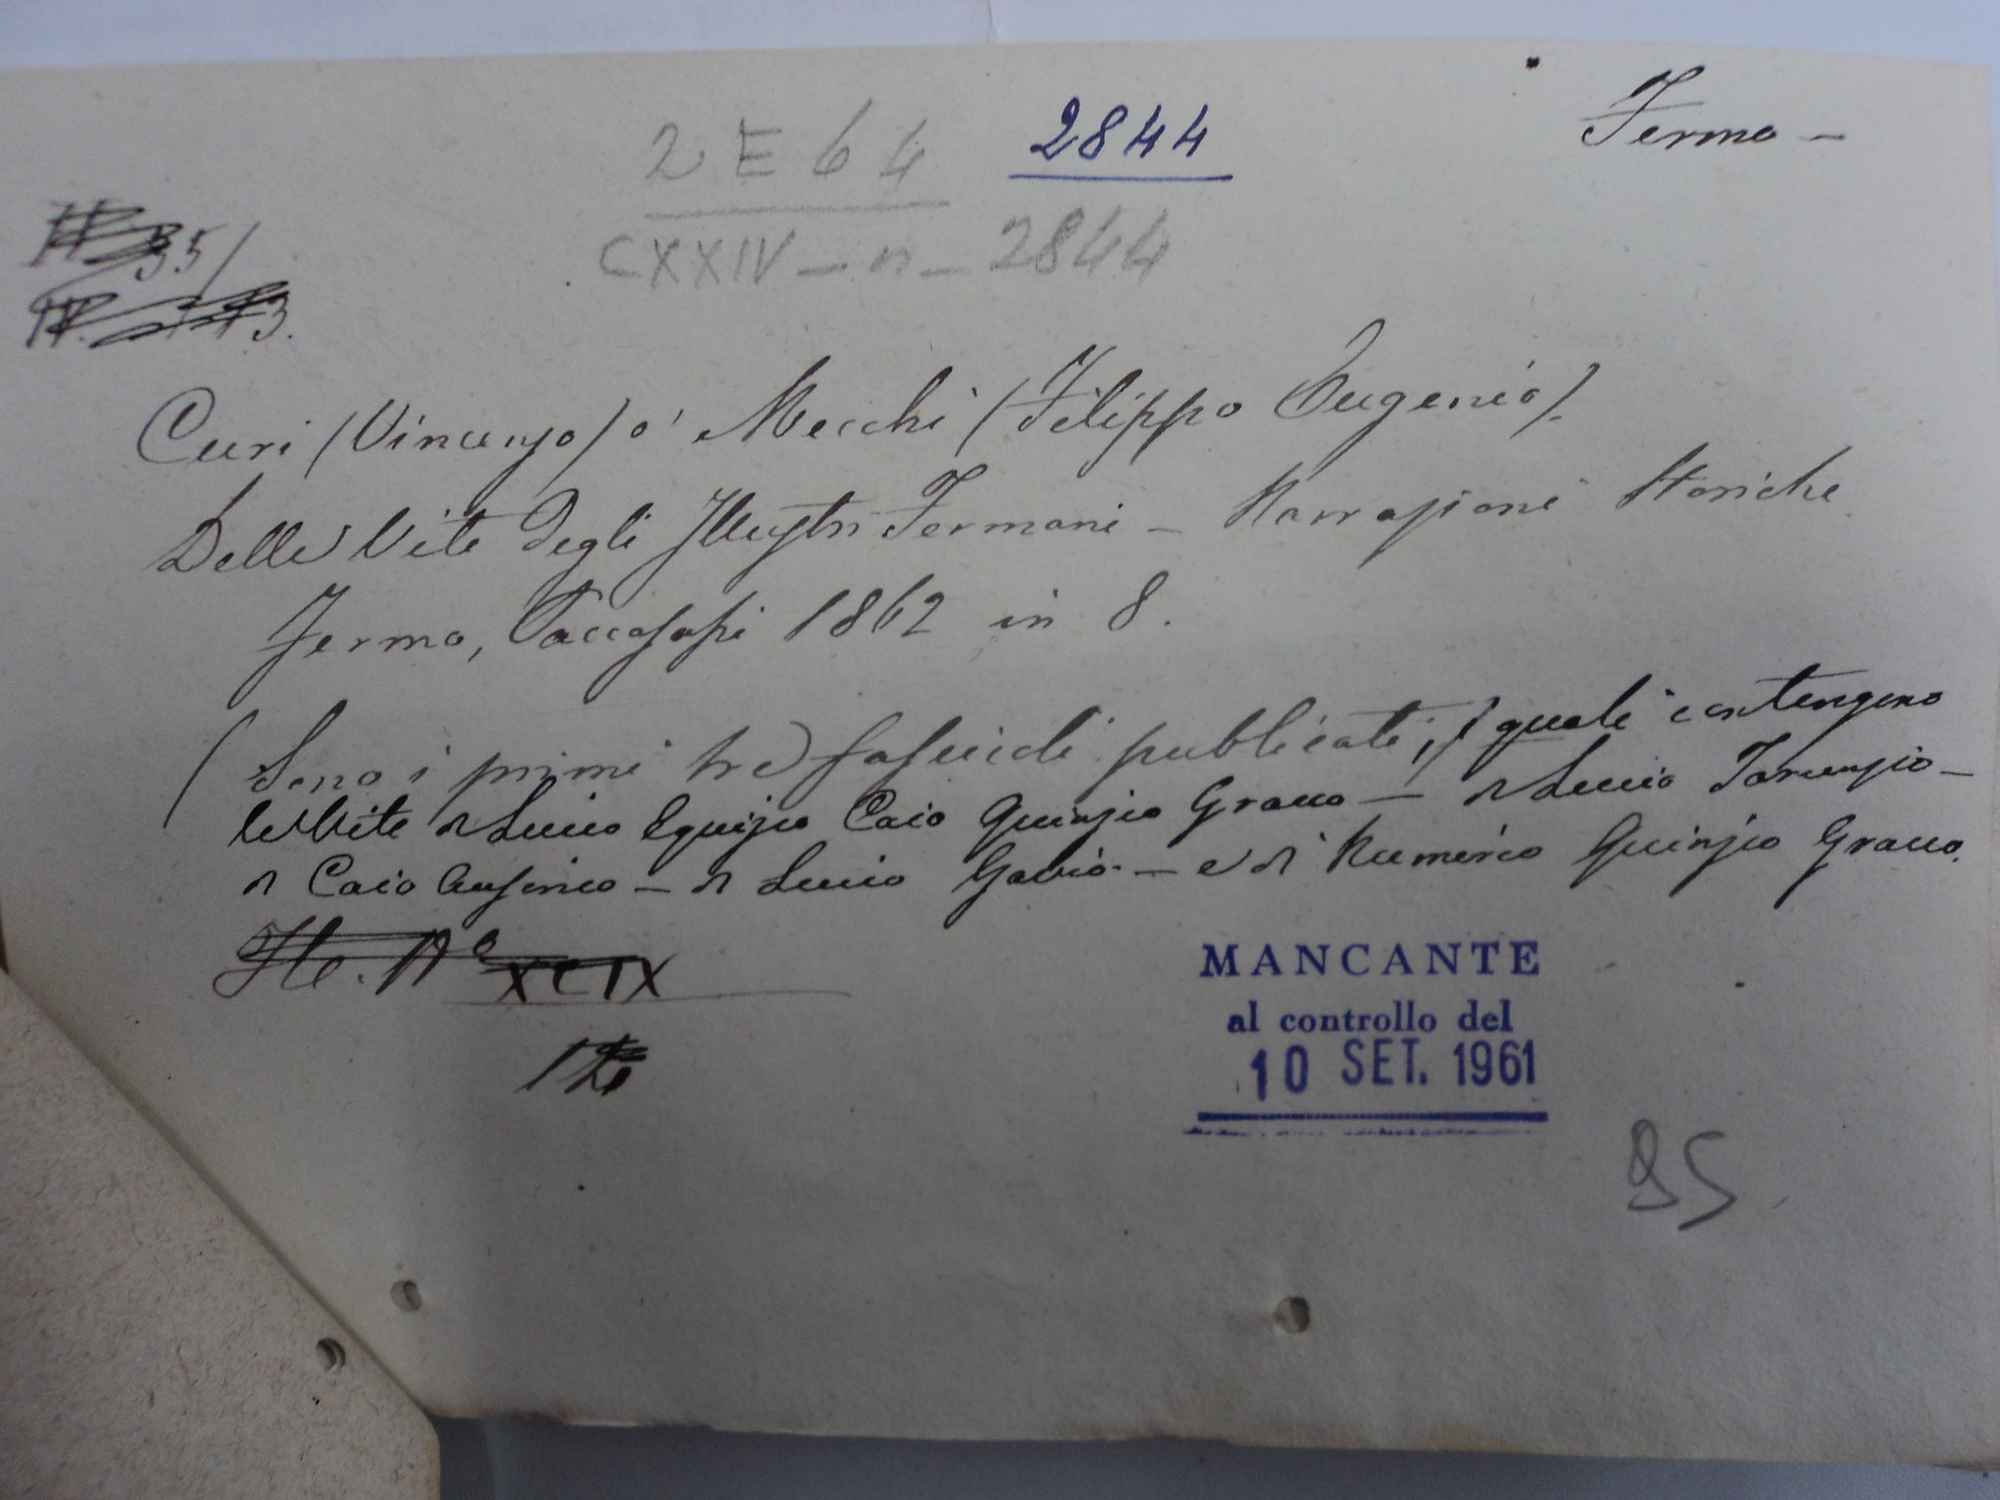 Fermo –
2 E 64 2844
CXXIV – n – 2844
35/
Curi (Vincenzo) e Mecchi (Filippo Eugenio).
Delle Vite degli Illustri Fermani – Narrazioni Storiche
Fermo, Paccasassi 1862 in 8.
(Sono i primi tre fascicoli publicati, i quali contengono
le Vite di Lucio Equizio Caio Quinzio Gracco – di Lucio Tarunzio –
di Caio Ausonio – di Lucio Gavio – e di Numerio Quinzio Gracco.
XCIX
MANCANTE
al controllo del
10 SET. 1961
95